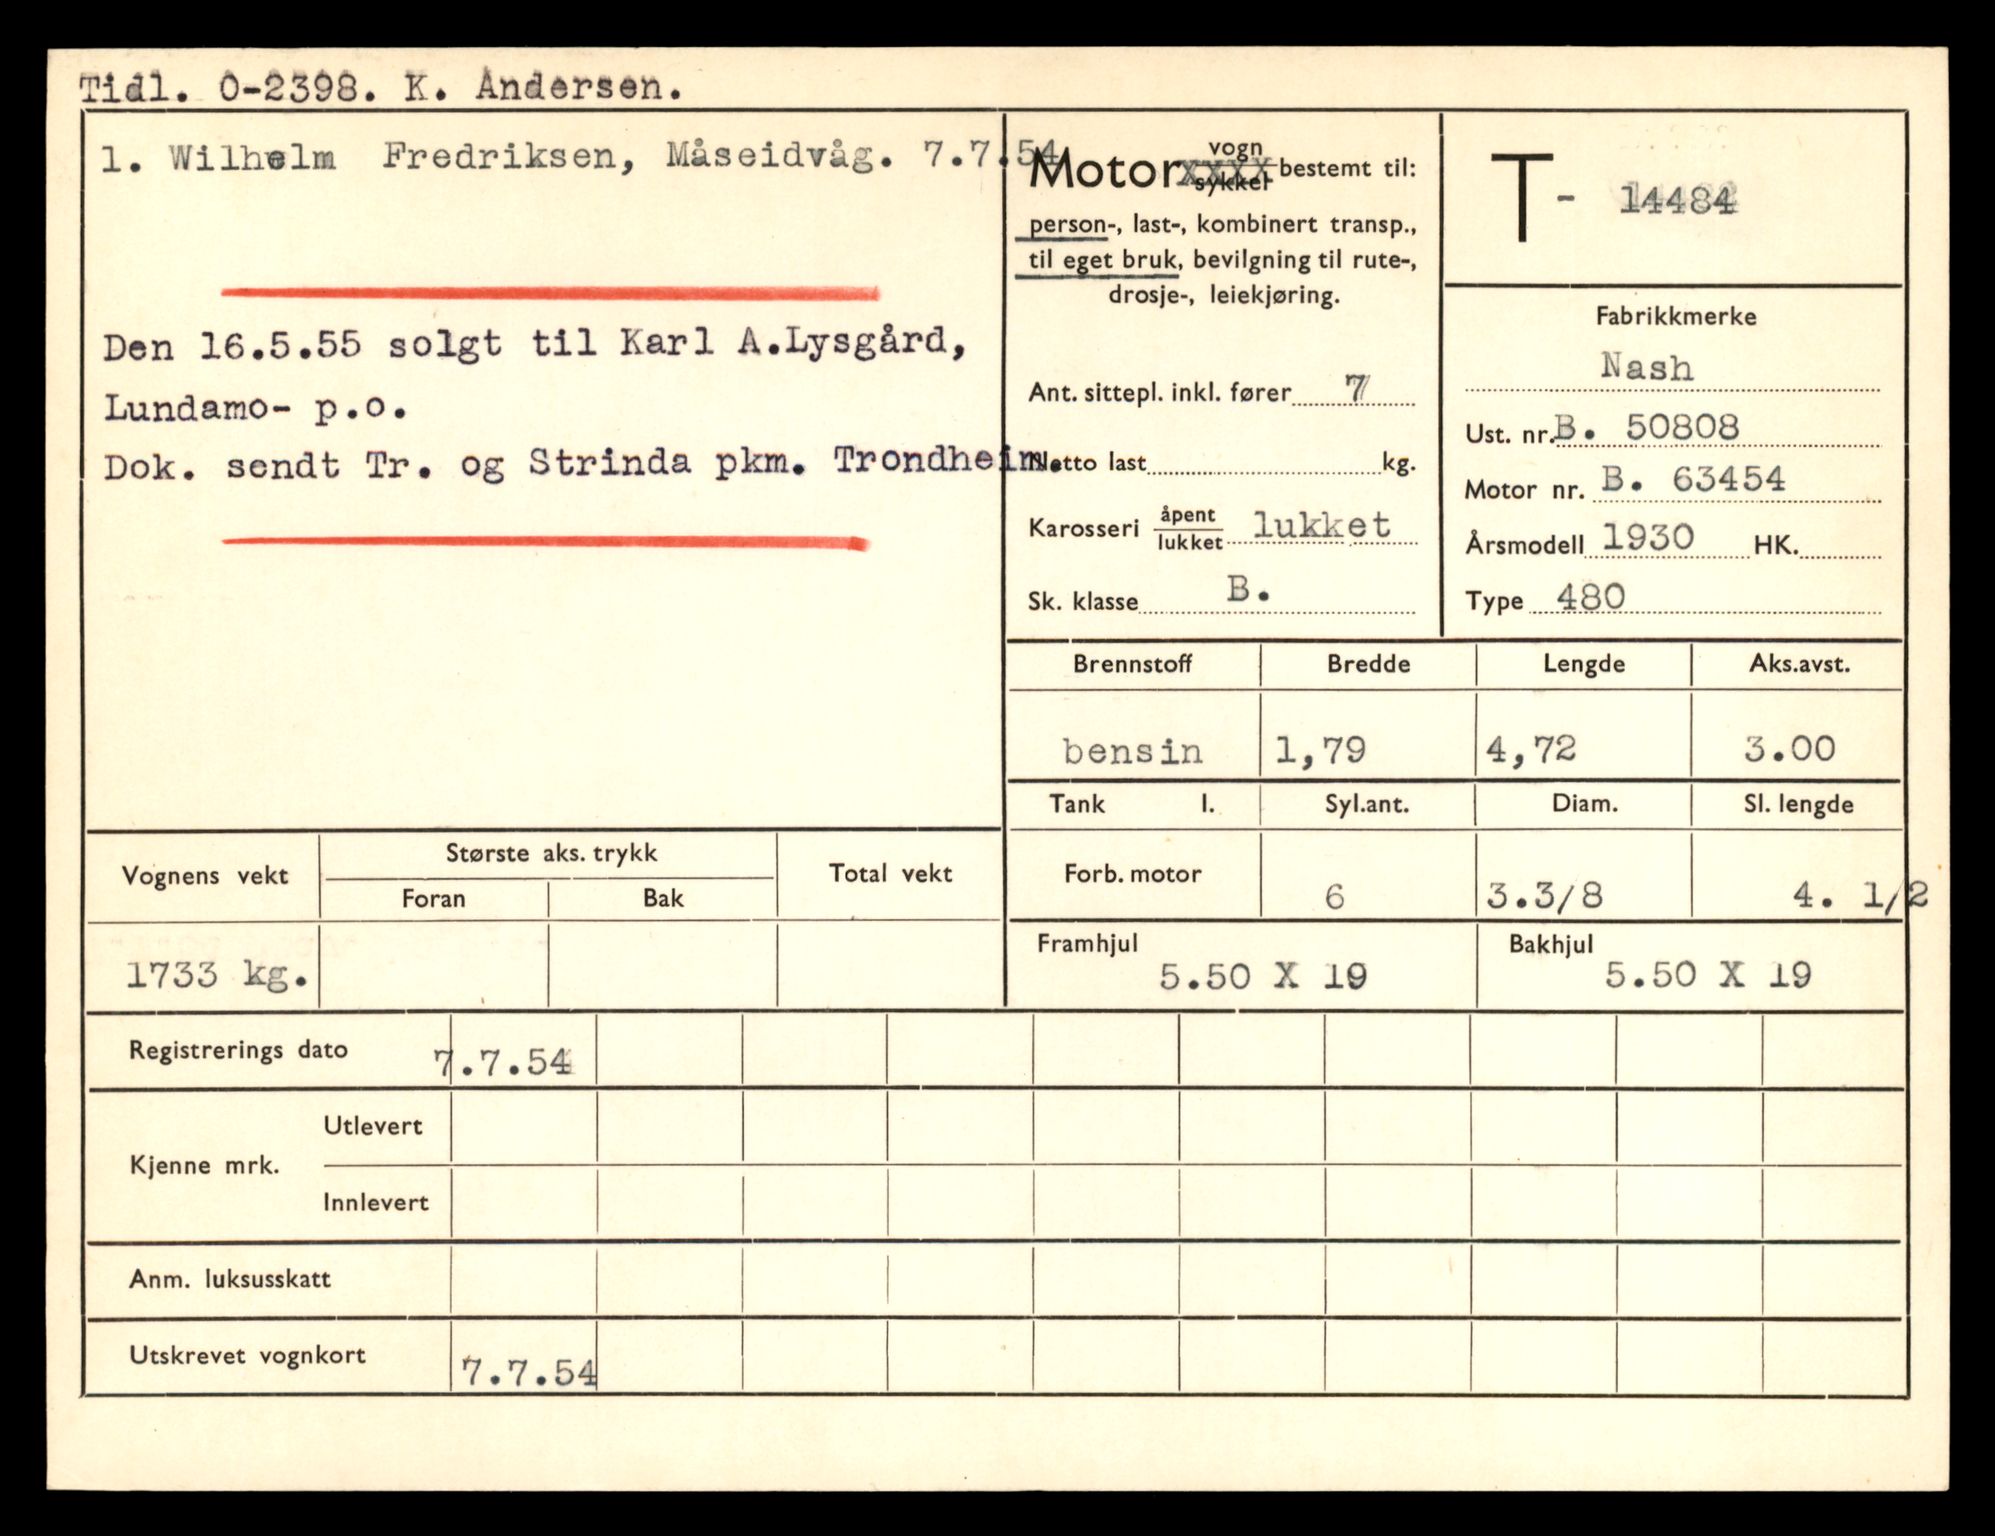 Tidl. O-2398. K. Andersen.
1. Wilhelm Fredriksen, Måseidvåg. 7.7.54
Den 16.5.55 solgt til Karl A.Lysgård,
Lundamo- p.o.
Dok. sendt Tr. og Strinda pkm. Trondheim.
Motor vogn sykkel bestemt til:
person-, last-, kombinert transp.,
til eget bruk, bevilgning til rute-,
drosje-, leiekjøring.
Ant. sittepl. inkl. fører 7
Netto last kg.
Karosseri åpent lukket lukket
Sk. klasse B.
T - 14484
Fabrikkmerke
Nash
Ust. nr. B. 50808
Motor nr. B. 63454
Årsmodell 1930 HK.
Type 480
Brennstoff Bredde Lengde Aks.avst.
bensin 1,79 4,72 3.00
Tank l. Syl.ant. Diam. Sl. lengde
Forb. motor 6 3.3/8 4. 1/2
Framhjul Bakhjul
5.50 X 19 5.50 X 19
Vognens vekt Største aks. trykk Total vekt
Foran Bak
1733 kg.
Registrerings dato 7.7.54
Kjenne mrk. Utlevert
Innlevert
Anm. luksusskatt
Utskrevet vognkort 7.7.54